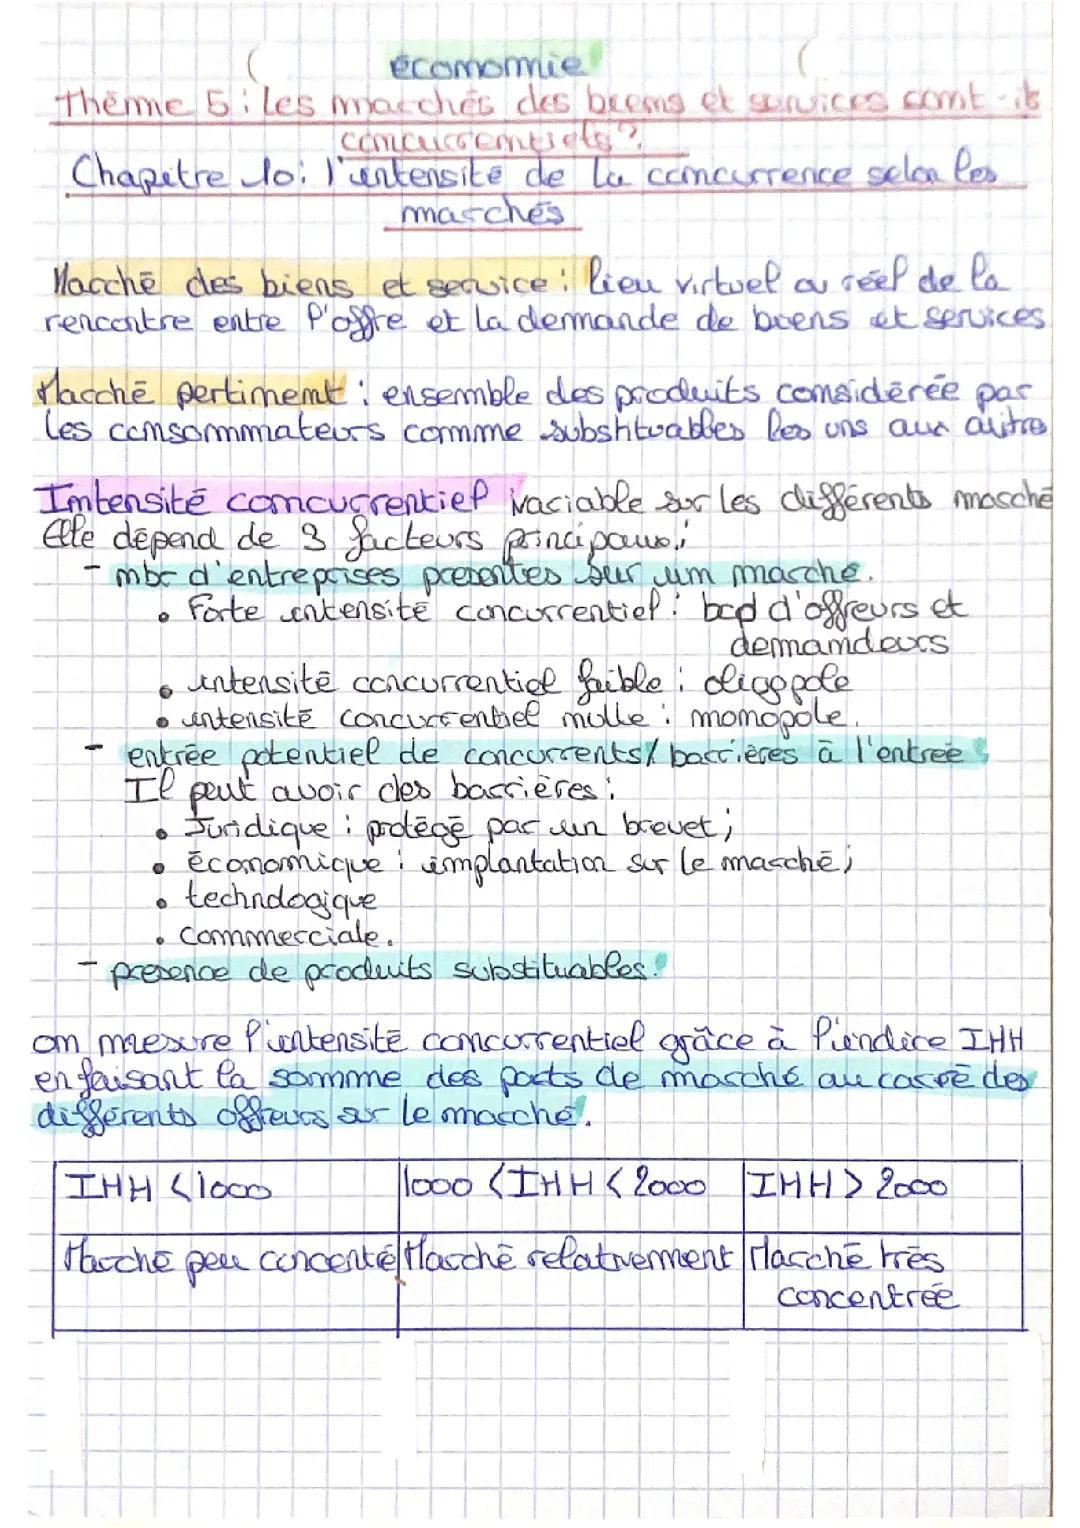 économie
Thème 5 : les marchés des biens et services sont-ils
concurrentiels ?
Chapitre 10 : l'intensité de la concurrence selon les
marchés
Marché des biens et service : lieu virtuel ou réel de la
rencontre entre l'offre et la demande de biens et services
Marché pertinent : ensemble des produits considérée par
les consommateurs comme substituables les uns aux autres
Intensité concurrentiel variable sur les différents marché
Elle dépend de 3 facteurs principaux :
- nbr d'entreprises presentes sur un marché.
• Forte intensité concurrentiel : bcp d'offreurs et
demandeurs
• intensité concurrentiel faible : oligopole
• intensité concurrentiel nulle : monopole.
- entrée potentiel de concurrents / barrières à l'entrée
Il peut avoir des barrières :
• Juridique : protégé par un brevet ;
• économique : implantation sur le marché ;
• technologique
• commerciale.
- presence de produits substituables.
on mesure l'intensité concurrentiel grâce à l'indice IHH
en faisant la somme des parts de marché au carré des
différents offreurs sur le marché.
IHH < 1000 1000 < IHH < 2000 IHH > 2000
Marché peu concenté Marché relativement Marché très
concentrée